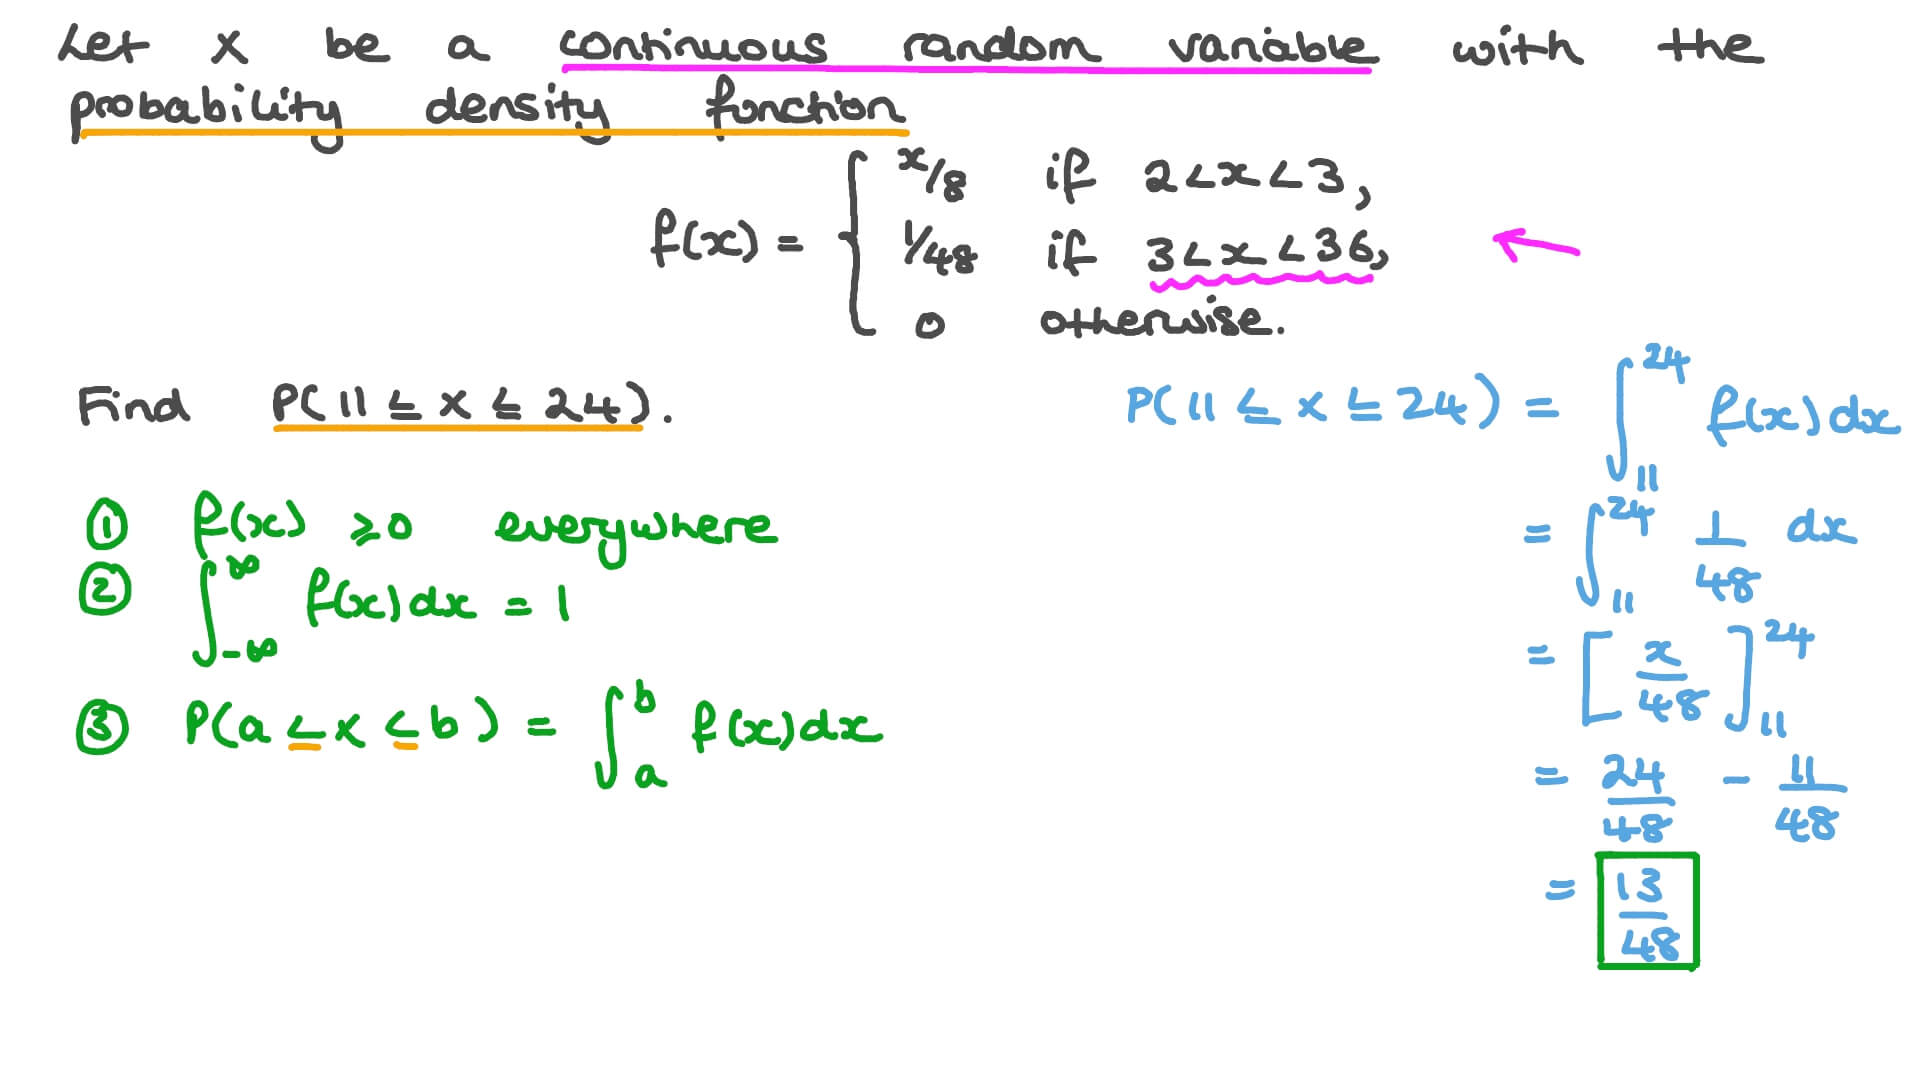 Let X be a continuous random variable with the
probability density function
f(x) = { x/8 if 2<x<3,
1/48 if 3<x<36,
0 otherwise.
Find P(11 ≤ X ≤ 24).
① f(x) ≥ 0 everywhere
② ∫_{-∞}^{∞} f(x)dx = 1
③ P(a ≤ X ≤ b) = ∫_a^b f(x)dx
P(11 ≤ X ≤ 24) = ∫_{11}^{24} f(x)dx
= ∫_{11}^{24} 1/48 dx
= [x/48]_{11}^{24}
= 24/48 - 11/48
= 13/48